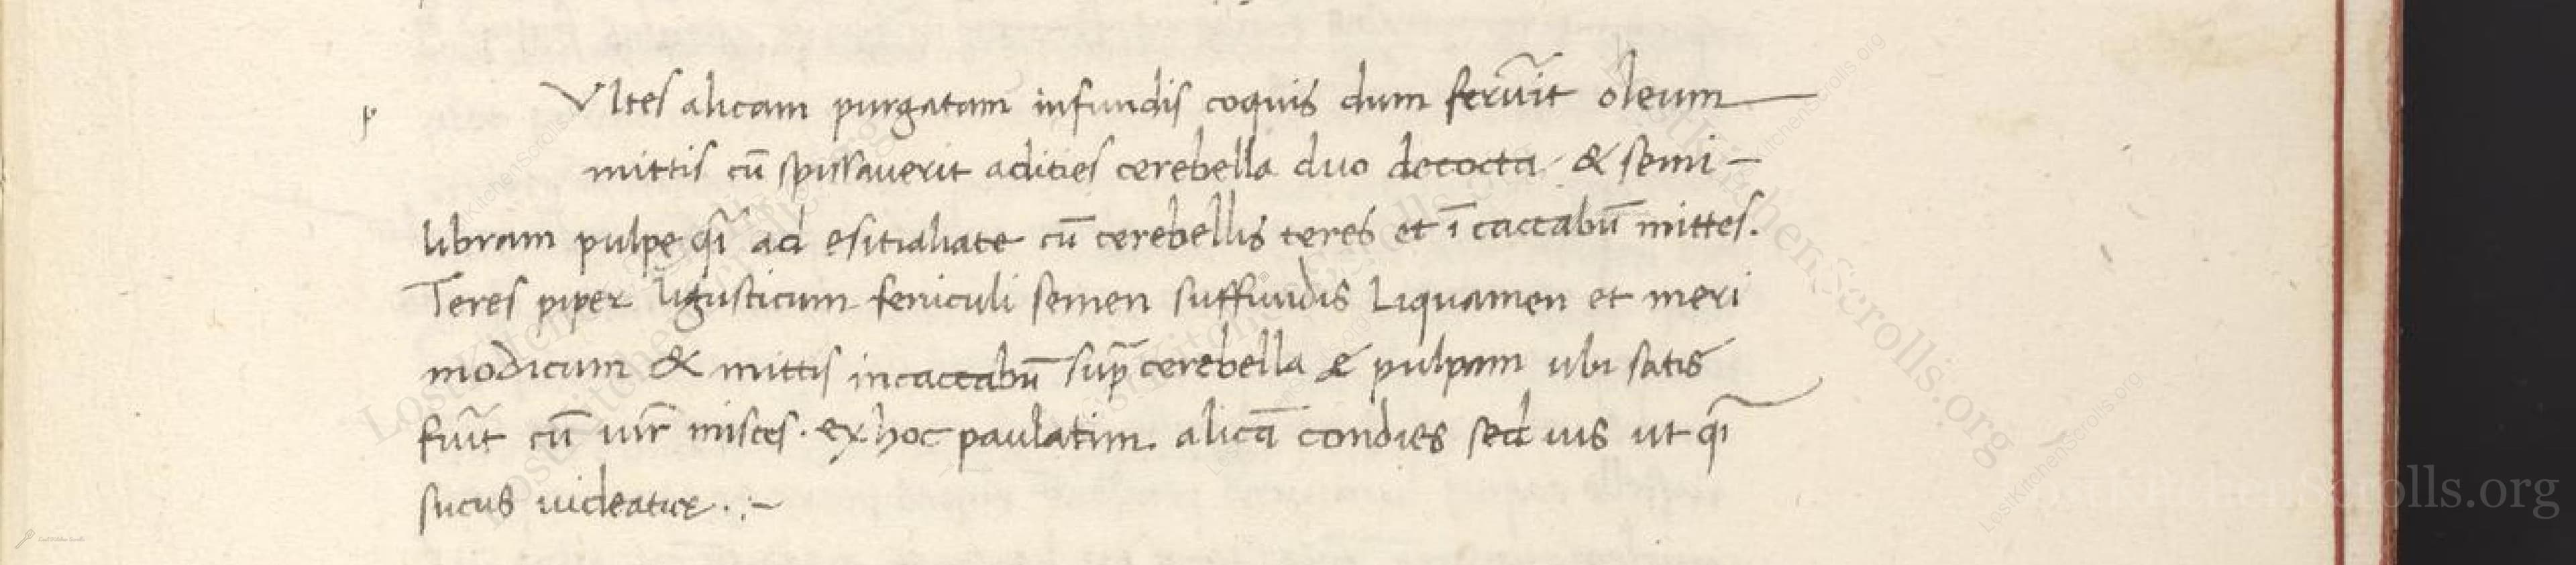 p
Vltes alicam purgatam infundis coquis dum feruı̃t oleum
mittis cũ spissauerit adities cerebella duo decocta & semi-
libram pulpe qı̃ ad esitialiate cũ cerebellis teres et ĩ caccabũ mittes.
Teres piper ligusticum feniculi semen suffundis Liquamen et meri
modicum & mittis incaccabũ sup̃ cerebella & pulpam ubi satis
fuı̃t cũ iur̃ misces. ex hoc paulatim. alicã condies sed ius ut qı̃
sucus uideatur. :-
LostKitchenScrolls.org